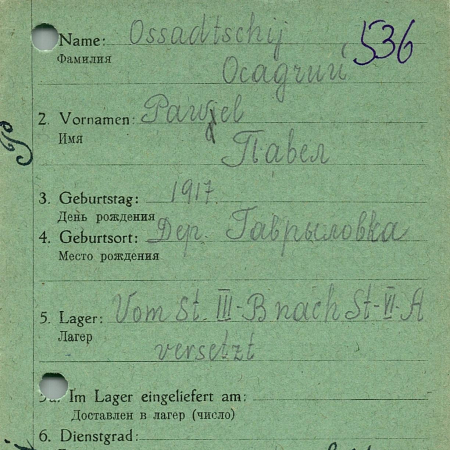 Name: Ossadtschij
536
Фамилия
Осадчий
2. Vornamen: Pawel
Имя
Павел
3. Geburtstag: 1917.
День рождения
4. Geburtsort: Дер. Гаврыловка
Место рождения
5. Lager: Vom St. III-B nach St-VI-A
Лагер
versetzt
Im Lager eingeliefert am:
Доставлен в лагер (число)
6. Dienstgrad: